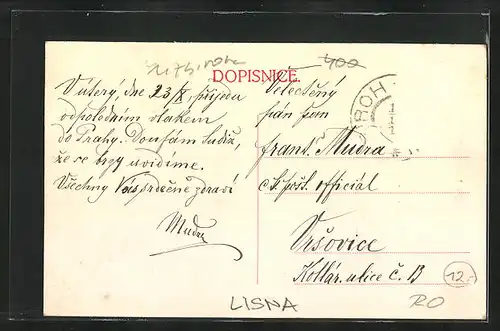 400
DOPISNICE.
V úterý, dne 23/X, přijedu
odpoledním vlakem
do Prahy. Doufám tudíž,
že se brzy uvidíme.
Všechny Vás srdečně zdraví
Mudra
Velectěný
pán pan
Frant. Mudra
c. k. pošt. official
Vršovice
Kollár. ulice č. 13
ROH
12
LISNA
RO